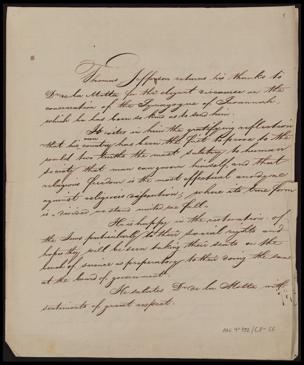 Thomas Jefferson returns his thanks to
Dr. de la Motta for the eloquent discourse on the
consecration of the Synagogue of Savannah
which he has been so kind as to send him.
It excites in him the gratifying reflection
that his country has been the first to prove to the
world two truths the most salutary to human
society that man can govern himself and that
religious freedom is the most effectual anodyne
against religious dissension; where its true form
is divided we stand united we fall.
He is happy in the restoration of
the Jews particularly to their social rights and
hopes they will be seen taking their seats on the
benches of science as preparatory to their doing the same
at the board of government.
He salutes Dr. de la Motta with
sentiments of great respect.